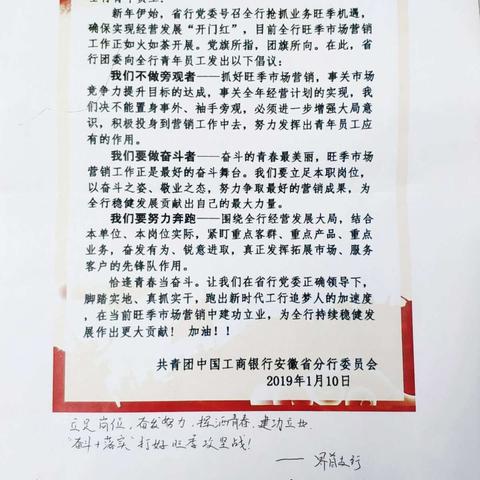 全行青年员工：
新年伊始，省行党委号召全行抢抓业务旺季机遇，
确保实现经营发展“开门红”，目前全行旺季市场营销
工作正如火如荼开展。党旗所指，团旗所向。在此，省
行团委向全行青年员工发出以下倡议：
我们不做旁观者——抓好旺季市场营销，事关市场
竞争力提升目标的达成，事关全年经营计划的实现，我
们决不能置身事外、袖手旁观，必须进一步增强大局意
识，积极投身到营销工作中去，努力发挥出青年员工应
有的作用。
我们要做奋斗者——奋斗的青春最美丽，旺季市场
营销工作正是最好的奋斗舞台。我们要立足本职岗位，
以奋斗之姿、敬业之态，努力争取最好的营销成果，为
全行稳健发展贡献出自己的最大力量。
我们要努力奔跑——围绕全行经营发展大局，结合
本单位、本岗位实际，紧盯重点客群、重点产品、重点
业务，奋发有为、锐意进取，真正发挥拓展市场、服务
客户的先锋队作用。
恰逢青春当奋斗。让我们在省行党委正确领导下，
脚踏实地、真抓实干，跑出新时代工行追梦人的加速度
，在当前旺季市场营销中建功立业，为全行持续稳健发
展作出更大贡献！加油！！
共青团中国工商银行安徽省分行委员会
2019年1月10日
立足岗位，奋发努力，挥洒青春，建功立业.
“奋斗+落实”打好旺季攻坚战！
——界首支行